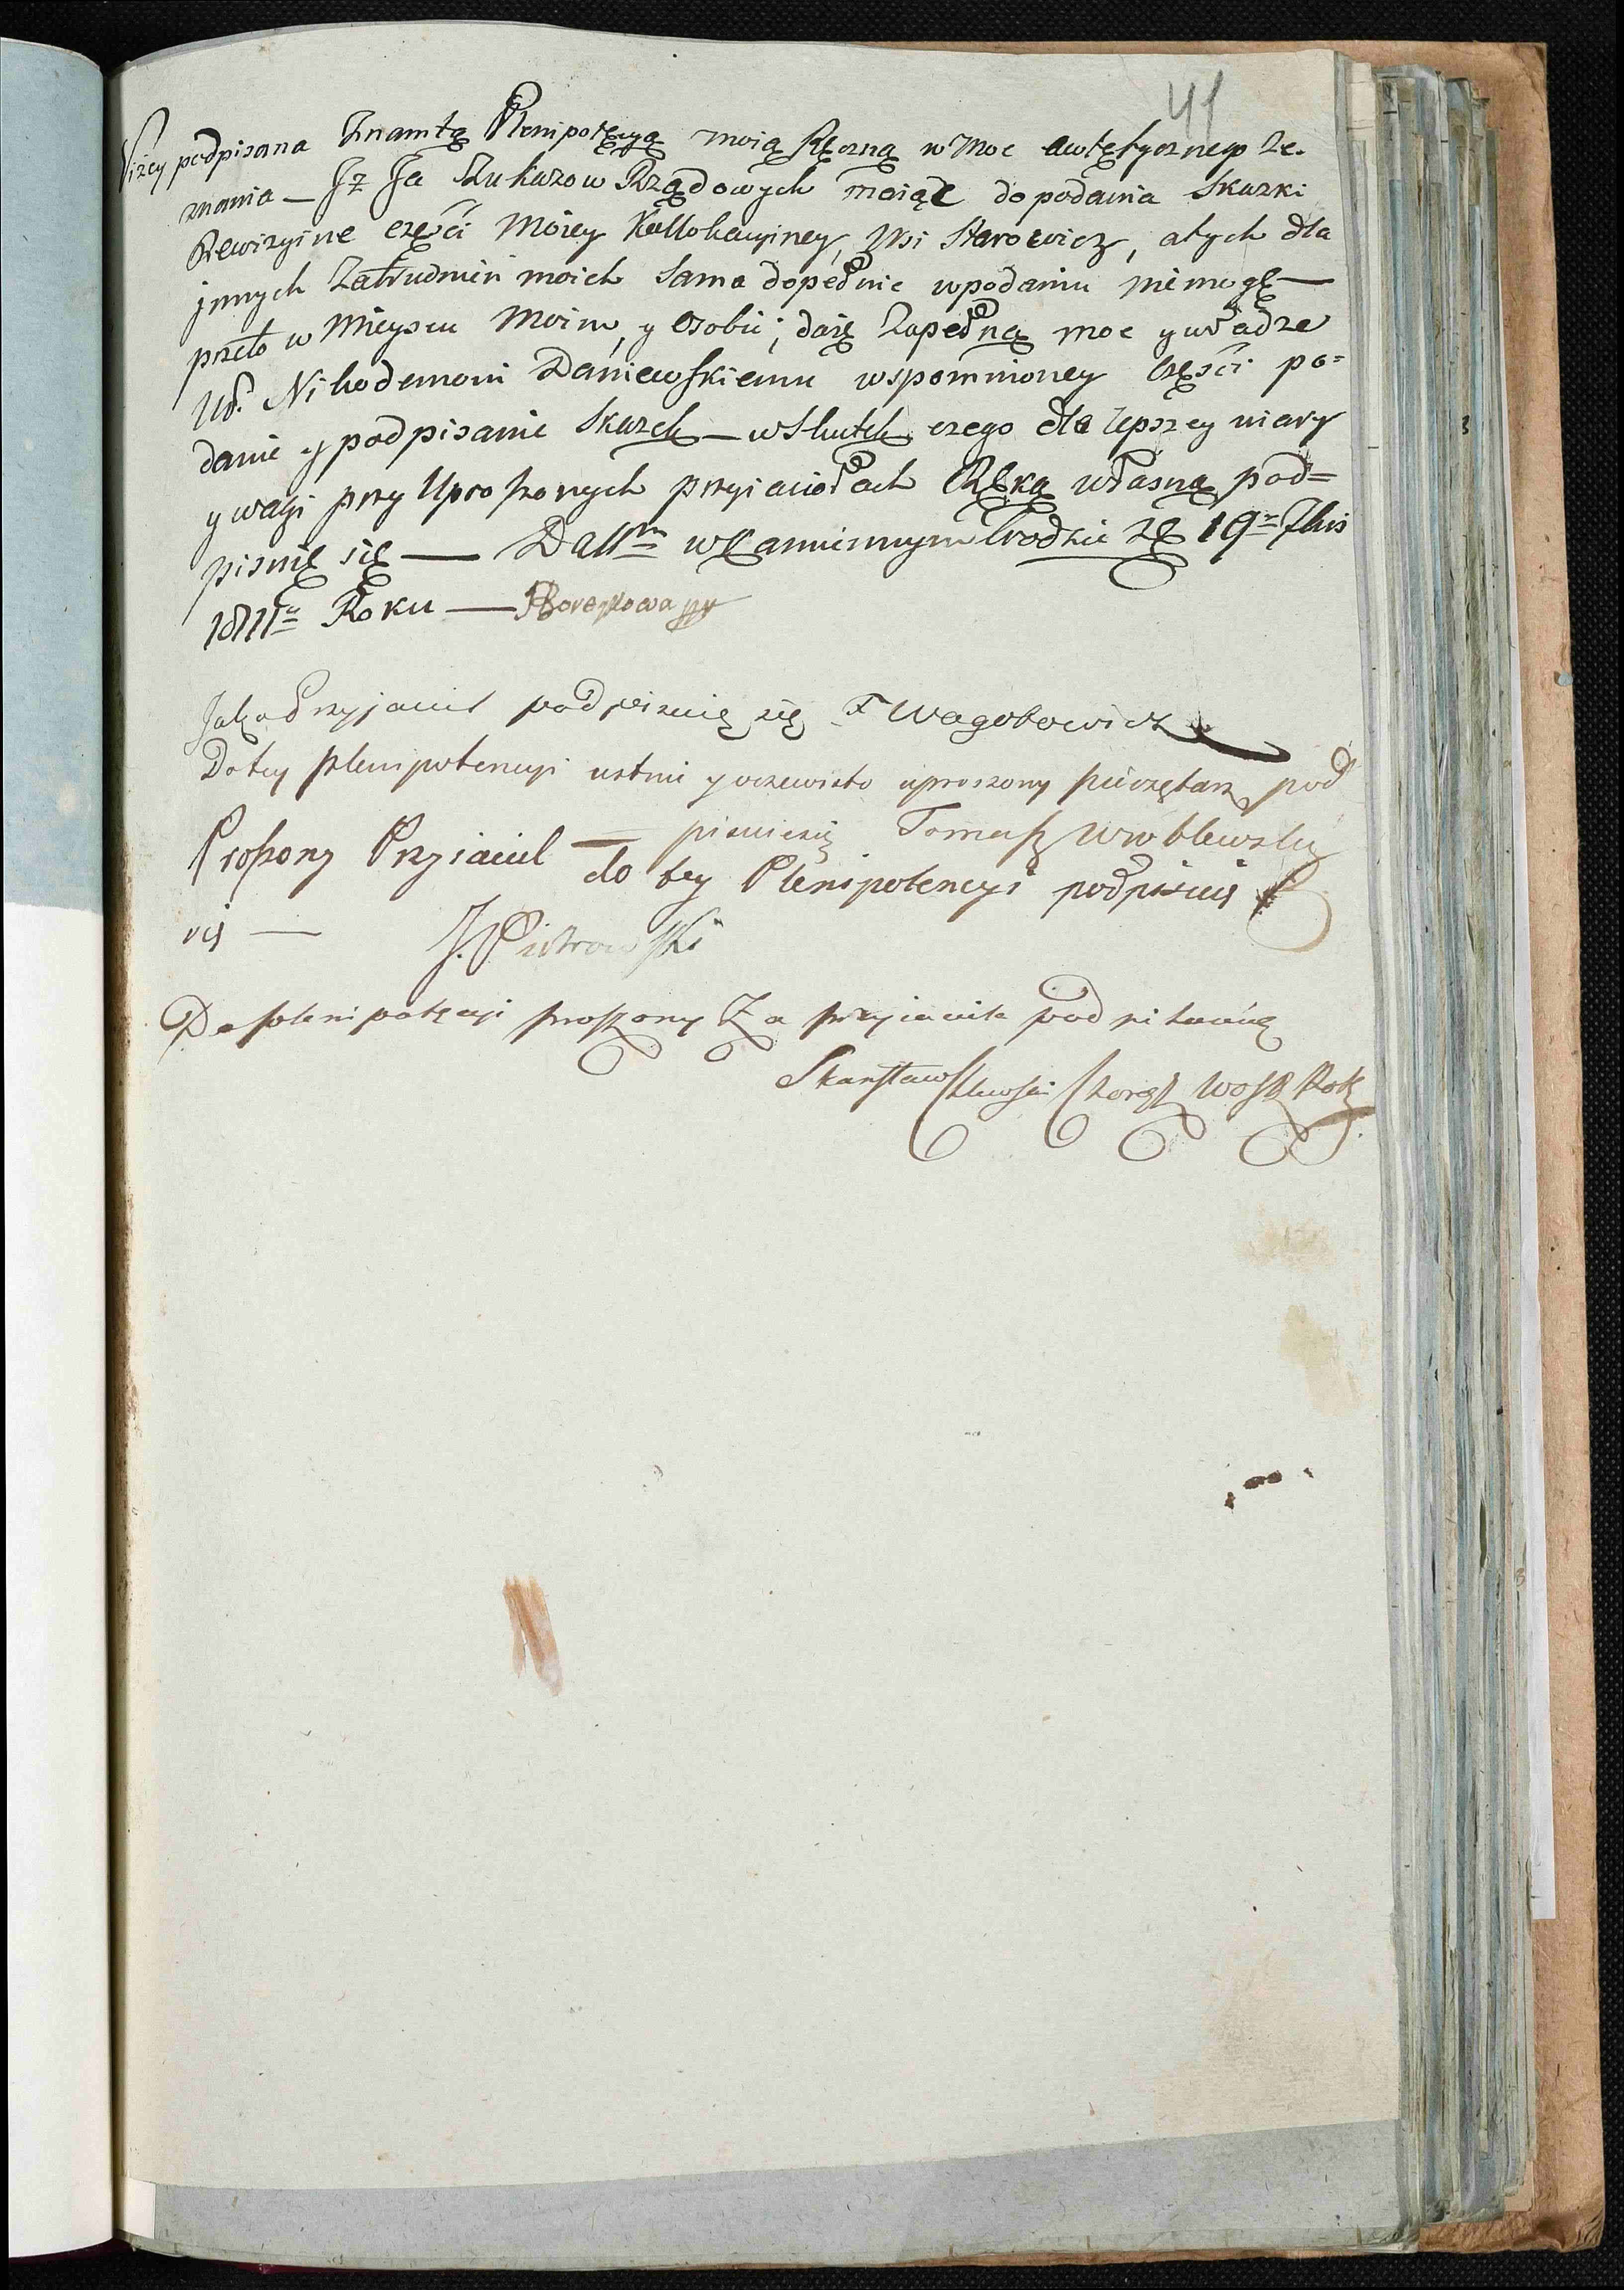 41
Niżey podpisana Znam tą Plenipotęcyą moią Ręczną w Moc awtętycznego Ze-
znania — Iż Ja Zukazow Rządowych maiąc do podania Skazki
Rewizyine części Moiey Kollokacyiney, Wsi Starowicz, atych dla
jnnych Zatrudnień moich Sama dopełnić wpodaniu niemogę —
przeto w Mieyscu Moim, y Osobie; daię Zapełną moc y władze
Uł. Nikodemowi Daniewskiemu wspomnioney Części po=
danie y podpisanie Skazek — w Skutek czego dla lepszey wiary
y wagi przy Uproszonych przyiaciołach Ręką własną pod=
pisuię się — Datt w Kamiennym Grodzie 19 7bris
1811 Roku — Borejkowa ppr
Jako Przyjaciel podpisuię się F Wagotowicz
Do tey plenipotencyi ustnie y oczewisto uproszony pieczętarz pod
pisuiesię Tomasz Wroblewsky
Proszony Przyiaciel — do tey Plenipotencyi podpisuię
się — J. Piotrowski
Do plenipotęcyi proszony Za przyiaciela podpisuię
Stanisław Choroży Woysk Pols